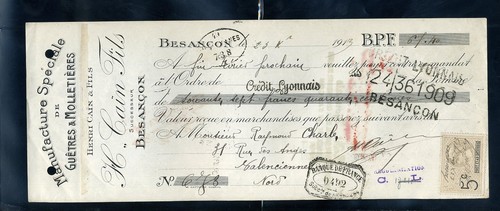 Manufacture Spéciale
DE
GUÊTRES & MOLLETIÈRES
HENRI CAEN & FILS
Hri Caen Fils
SUCCESSEUR
BESANÇON
BESANÇON, le 23 Xe 1913 B.P.F. 67.40
A fin février prochain veuillez payer contre ce mandat
à l'Ordre de Crédit Lyonnais
la somme de soixante sept francs quarante
Valeur reçue en marchandises que passerez suivant avis
A Monsieur Raymond Charly
31 Rue des Anges
Valenciennes
No 673 Nord
LYONNAIS
24/361909
BESANÇON
BANQUE DE FRANCE
0492
5c